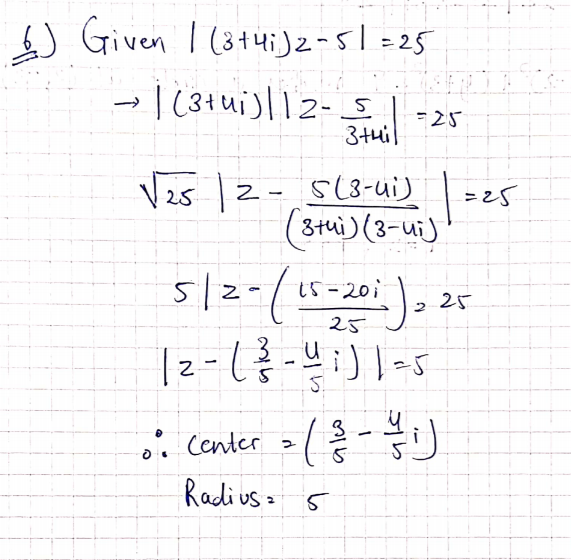 6) Given |(3+4i)z-5| = 25
→ |(3+4i)| |z - 5/(3+4i)| = 25
√25 |z - 5(3-4i)/((3+4i)(3-4i))| = 25
5 |z - ((15-20i)/25) = 25
|z - (3/5 - 4/5 i)| = 5
∴ center = (3/5 - 4/5 i)
Radius = 5